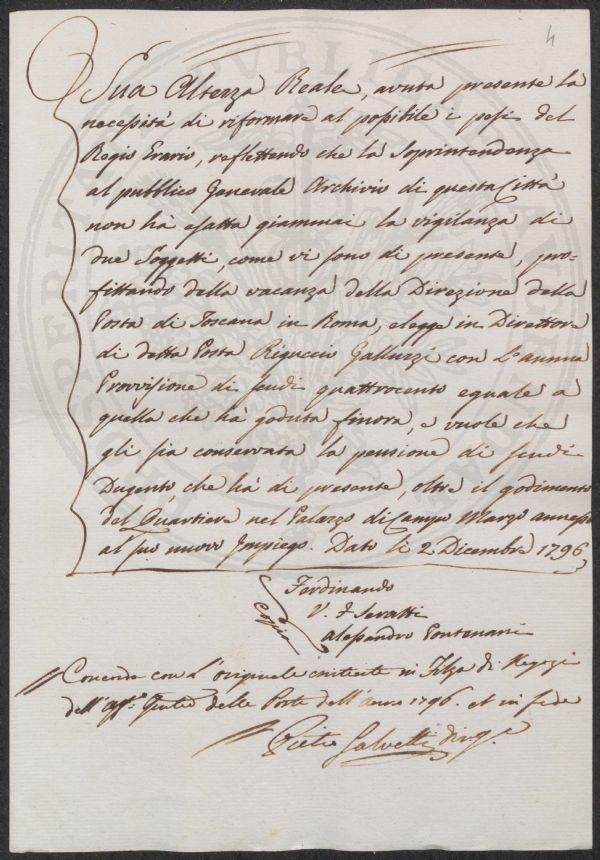 4
Sua Altezza Reale, avuta presente la
necessità di riformare al possibile i pesi del
Regio Erario, reflettendo che la Soprintendenza
al pubblico Generale Archivio di questa Città
non hà esatta giammai la vigilanza di
due Soggetti, come vi sono di presente, pro=
fittando della vacanza della Direzione della
Posta di Toscana in Roma, elegge in Direttore
di detta Posta Riguccio Galluzzi con l'annua
Provvisione di scudi quattrocento equale a
quella che hà goduta finora, e vuole che
gli sia conservata la pensione di scudi
Dugento, che hà di presente, oltre il godimento
del Quartiere nel Palazzo di Campo Marzo annesso
al suo nuovo Impiego. Dato li 2. Dicembre 1796
Ferdinando
Copia
V. Seratti
Alessandro Pontenani
Concorda con l'originale esistente in Filza di Negozj
dell' delle Poste dell'anno 1796. et in fede
Pietro Salvetti
PUBLIC